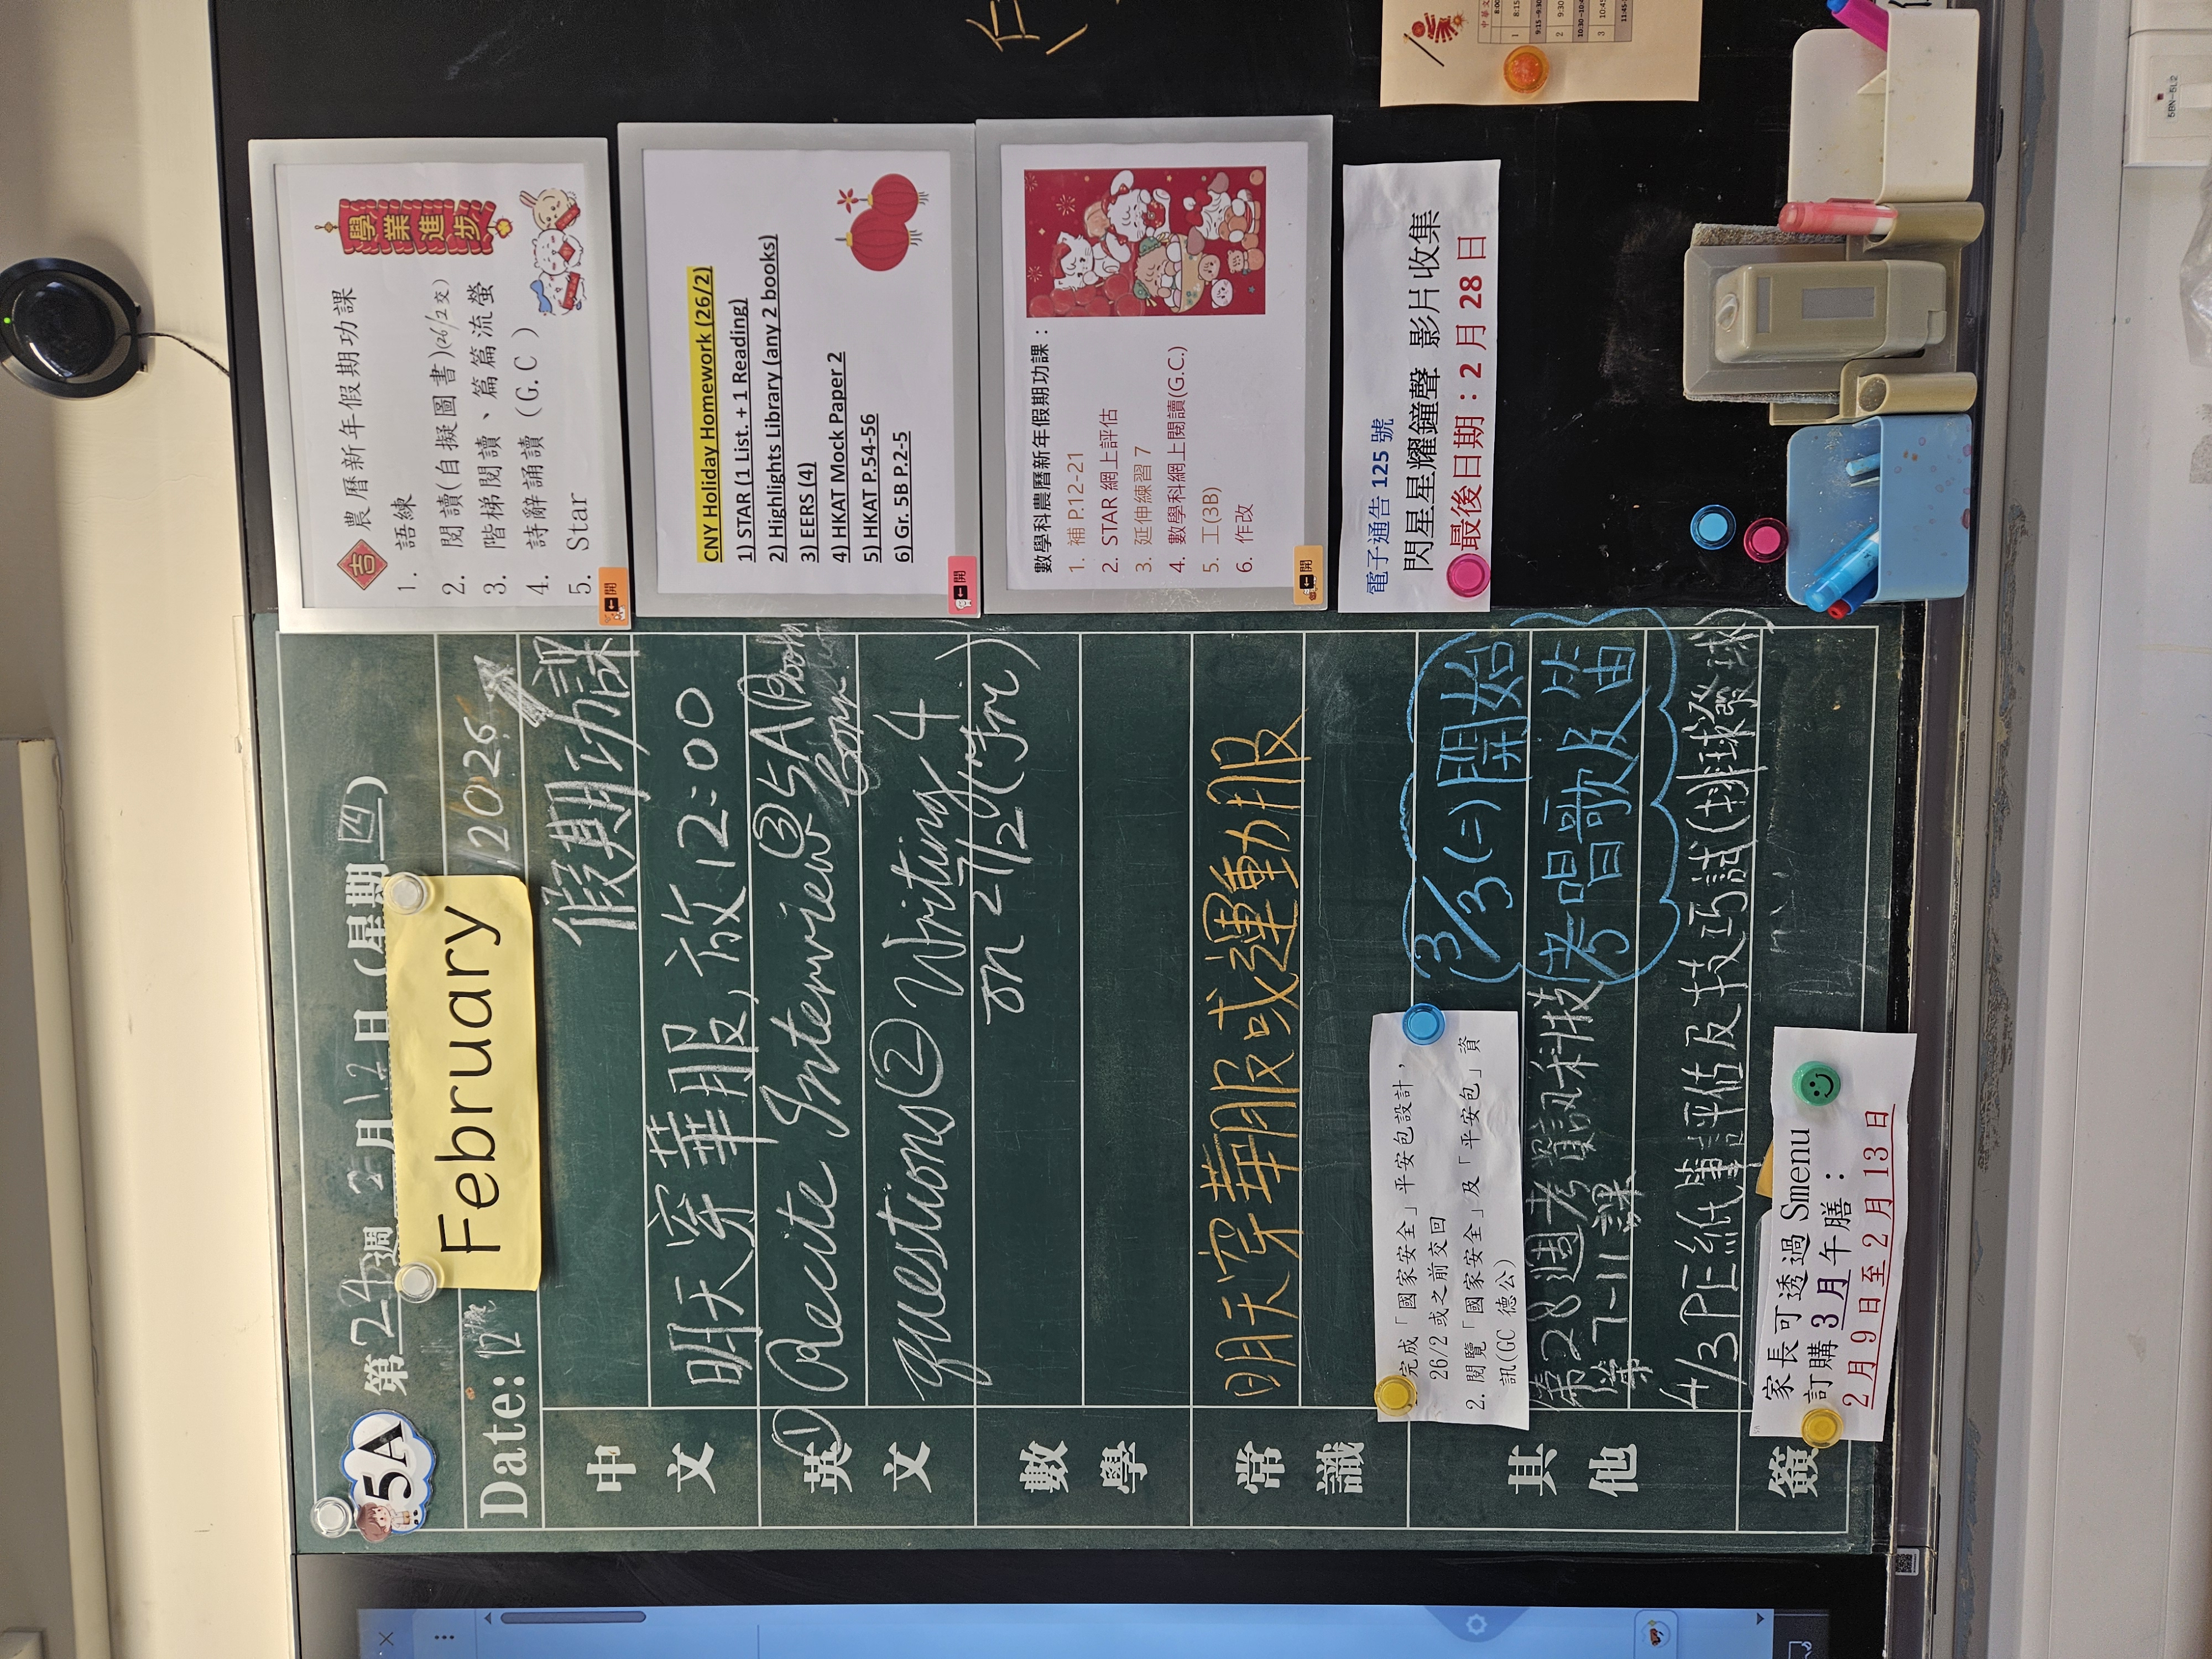 5A
第24週 2月12日(星期四)
February
Date: 12
2026
中文
假期功課
明天穿華服,放12:00
英文
① Recite Interview ③ 5A Book
questions ② Writing 4
on 27/2 (Fri)
數學
常識
明天穿華服或運動服
其他
完成「國家安全」平安包設計,
26/2 或之前交回
2. 閱覽「國家安全」及「平安包」資
訊(GC 德公)
3/3(二)開始
考唱歌及笛
第28週考資訊科技
第7-11課
4/3 PE紙筆評估及技巧試(排球發球)
簽
家長可透過 Smenu
訂購 3 月午膳:
2 月 9 日至 2 月 13 日
學業進步
吉
農曆新年假期功課
1. 語練
2. 閱讀(自擬圖書)(26/2交)
3. 階梯閱讀、篇篇流螢
4. 詩辭誦讀(G.C)
5. Star
開
CNY Holiday Homework (26/2)
1) STAR (1 List. + 1 Reading)
2) Highlights Library (any 2 books)
3) EERS (4)
4) HKAT Mock Paper 2
5) HKAT P.54-56
6) Gr. 5B P.2-5
開
數學科農曆新年假期功課:
1. 補 P.12-21
2. STAR 網上評估
3. 延伸練習 7
4. 數學科網上閱讀(G.C.)
5. 工(3B)
6. 作改
開
電子通告 125 號
閃星星耀鐘聲 影片收集
最後日期:2 月 28 日